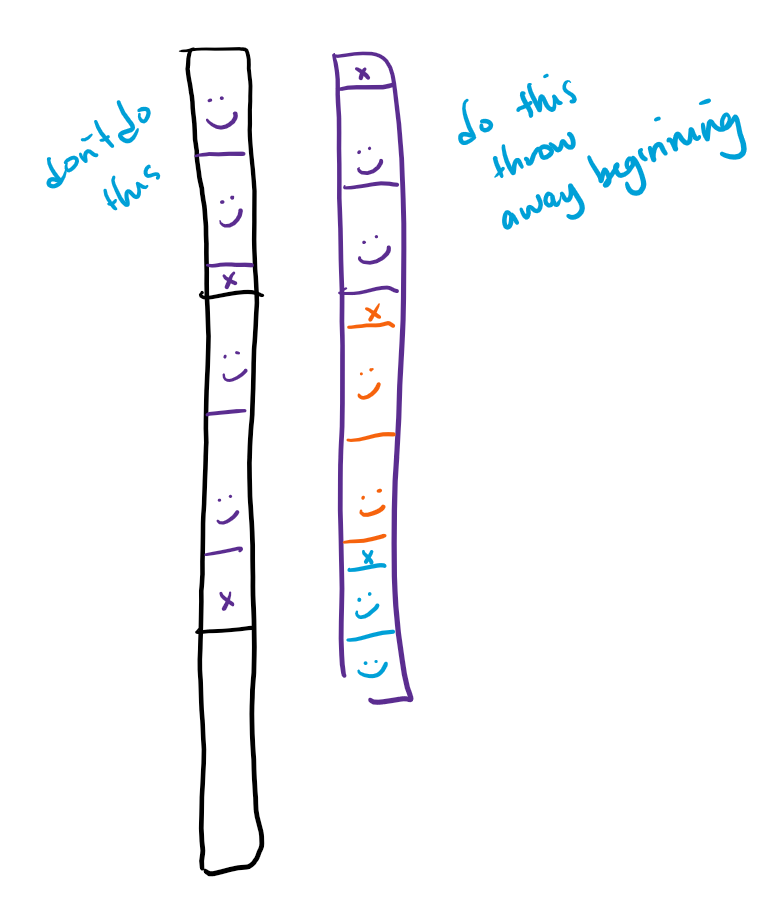 don't do
this
x
x
x
x
x
do this
throw
away beginning